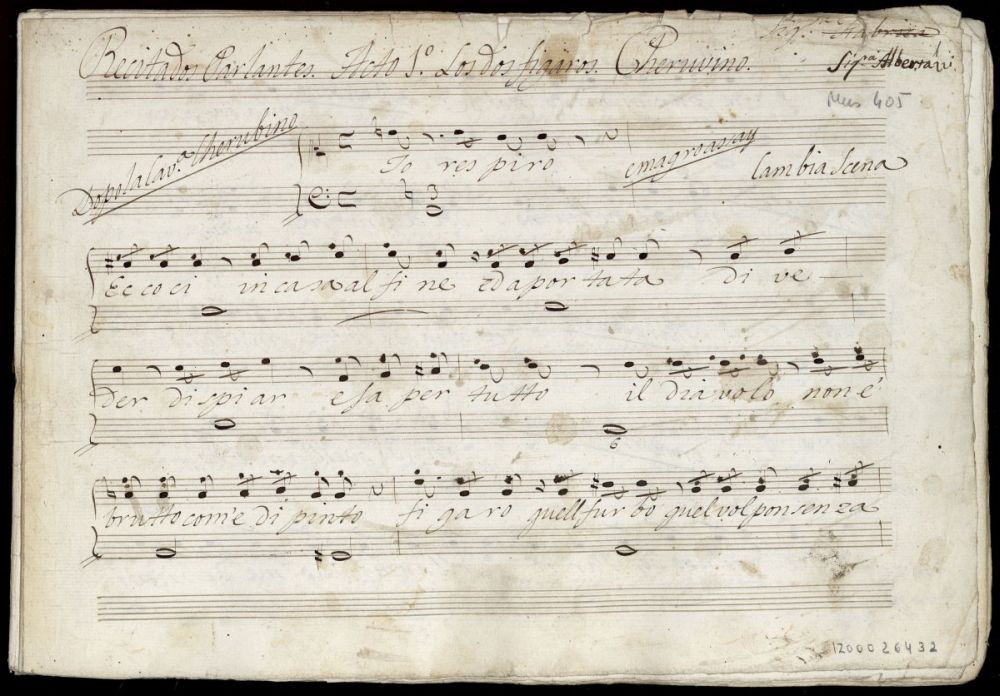 Recitados Parlantes. Acto 1º. Los dos figaros. Cheruvino.
Sigª. Fabrica
Sigra Albertali
Mus 405
Dopo la Cavª Cherubino
Io respiro
emagroasay
Cambia Scena
Ec co ci in casa al fi ne ed a por ta ta di ve
der di spi ar e sa per tutto il diavolo non é
6
brutto com'e di pinto fi ga ro quell fur bo quel vol pon senza
1200026432